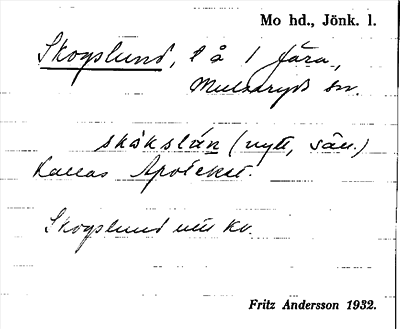 Mo hd., Jönk. l.
Skogslund, l å 1 Jära,
Mulseryds sn.
skåkslán (nytt, sän.)
Kallas Apoteket.
Skogslund utt Kv.
Fritz Andersson 1932.